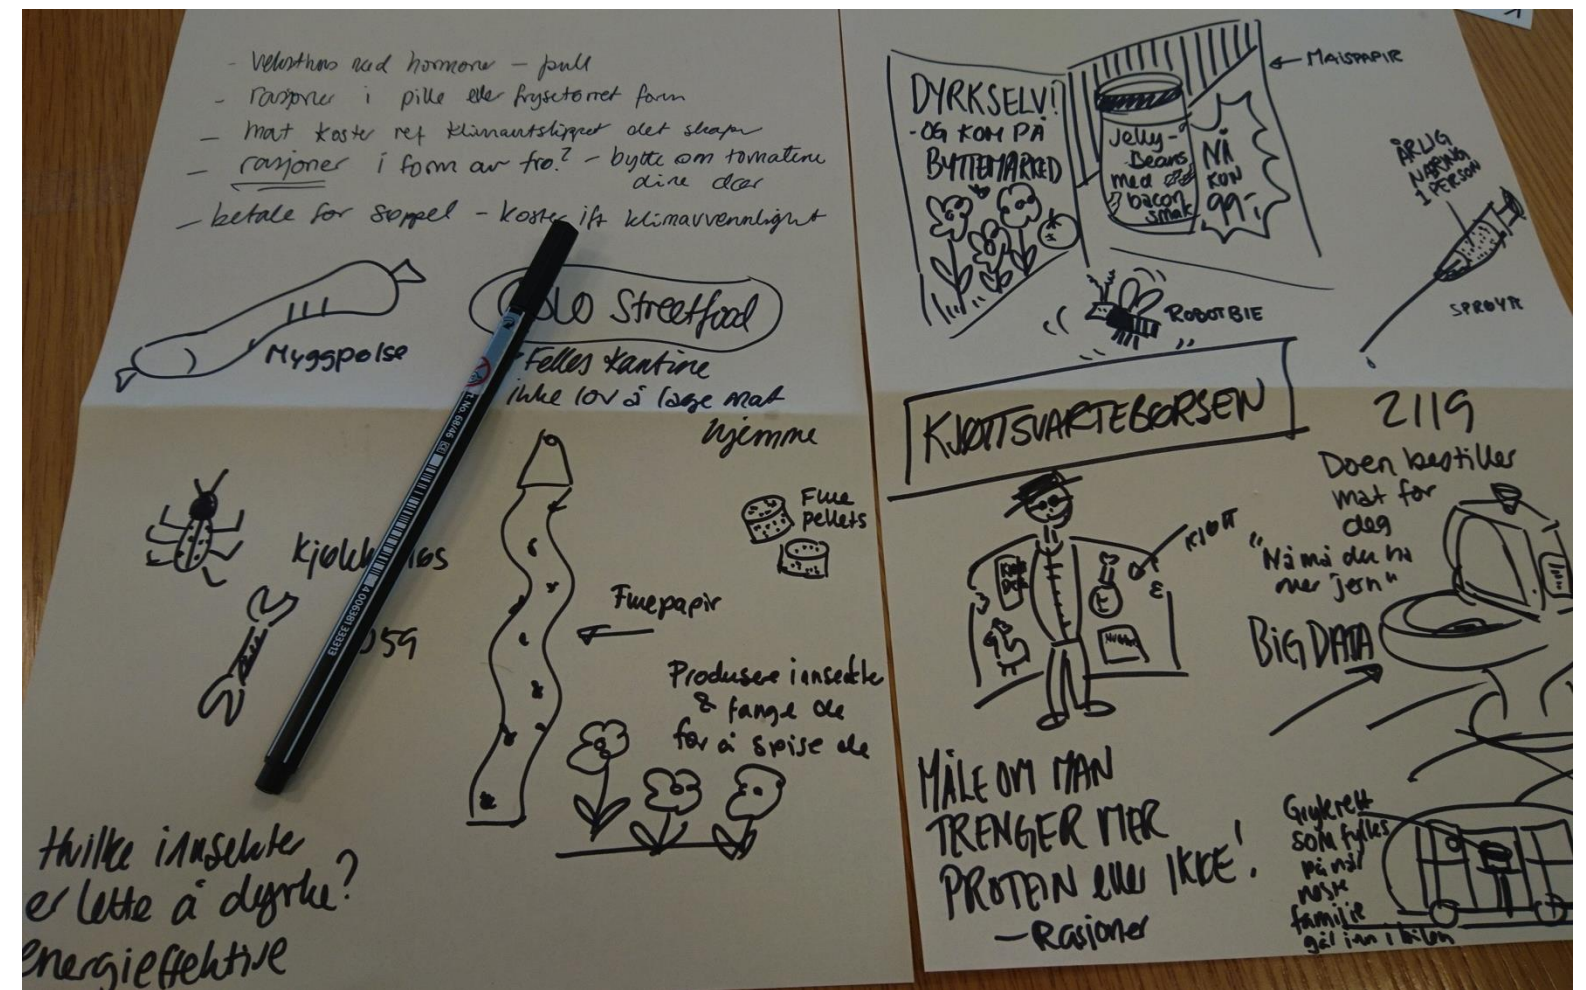 - veksthus med hormoner - pull
- rasjoner i pille eller frysetørret form
- mat koster ref klimautslippet det skaper
- rasjoner i form av frø? - bytte om tomatene
dine dør
- betale for søppel - koster ift klimavennlighet
Myggpølse
Streetfood
Felles kantine
ikke lov å lage mat
hjemme
Flue
pellets
Fluepapir
Produsere innsekter
& fange de
for å spise de
Hvilke innsekter
er lette å dyrke?
energieffektive
No. 68/46
4 006381 333313
DYRKSELV!
- OG KOM PÅ
BYTTEMARKED
Jelly-
Beans
med
bacon
smak
NÅ
KUN
99,-
MAISPAPIR
ÅRLIG
NÆRING
1 PERSON
SPRØYTE
ROBOTBIE
KJØTTSVARTEBØRSEN
2119
Doen bestiller
mat for
deg
"Nå må du ha
mer jern"
KJØTT
BIG DATA
MÅLE OM MAN
TRENGER MER
PROTEIN eller IKKE!
- Rasjoner
Gryterett
som fylles
på når
neste
familie
går inn i bilen